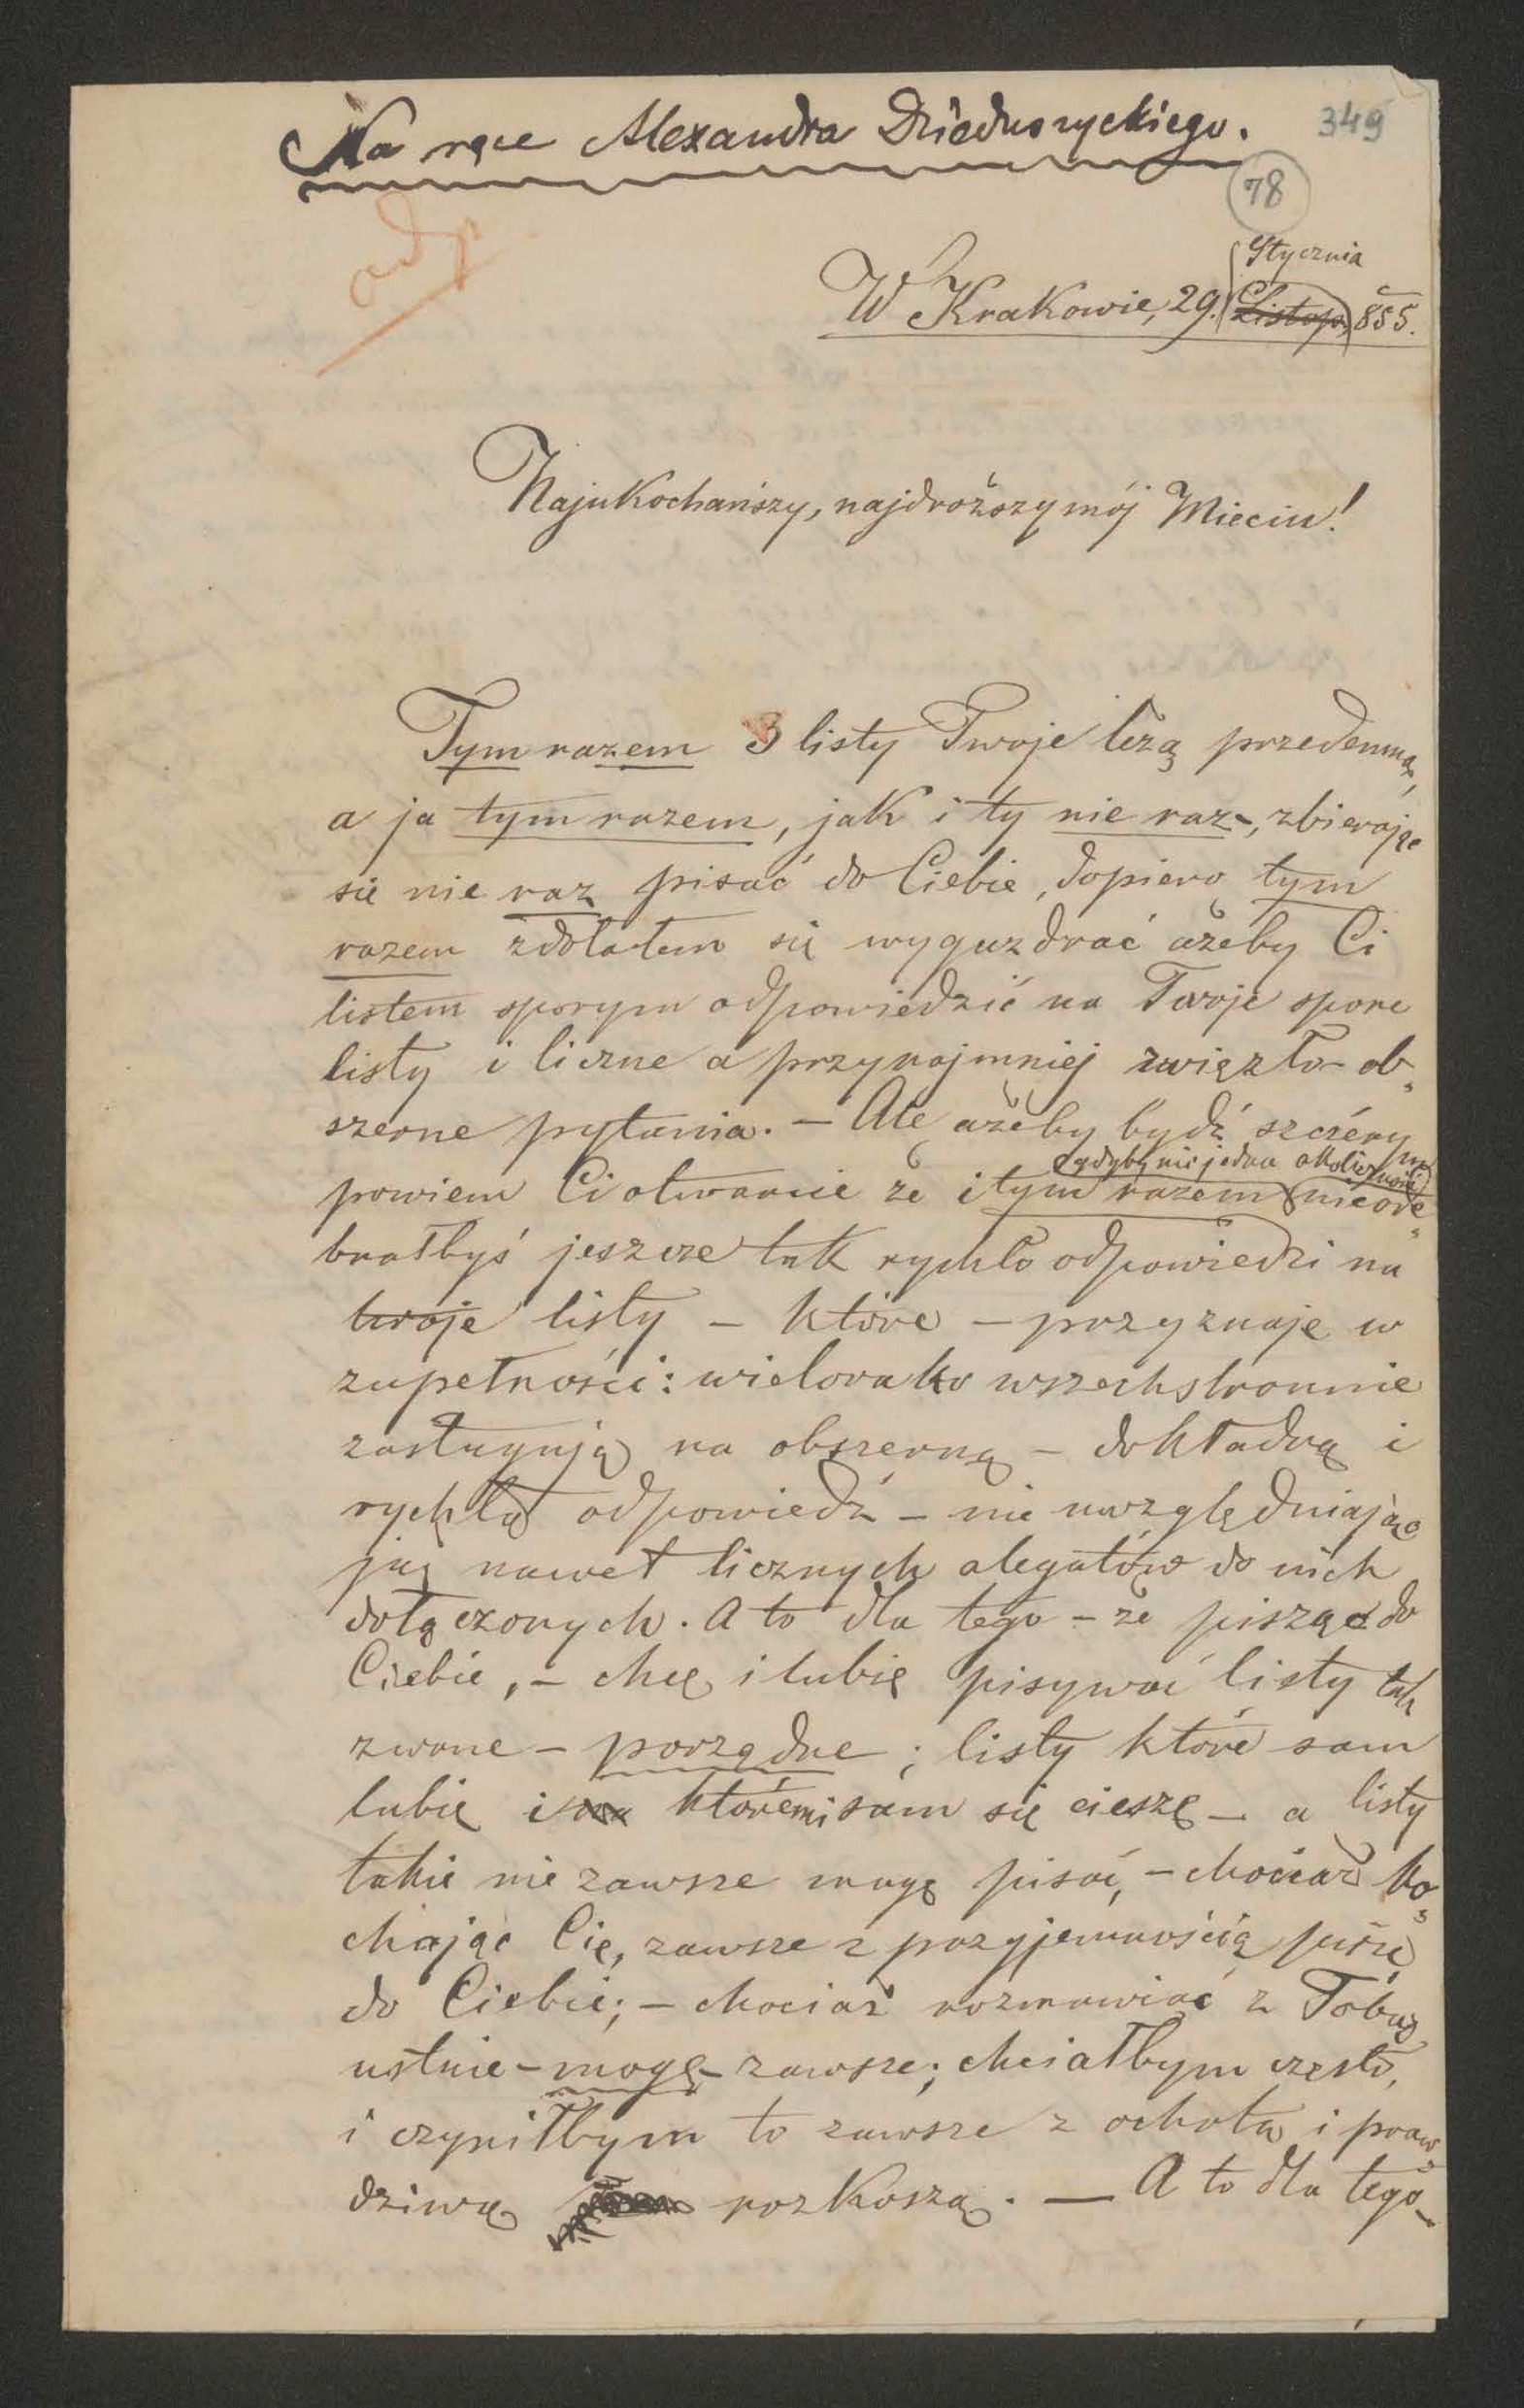 Na ręce Alexandra Dzieduszyckiego.
349
78
odp
Stycznia
W Krakowie, 29. Listop. 855.
Najukochańszy, najdroższy mój Mieciu!
Tym razem 3 listy Twoje leżą przedemną,
a ja tym razem, jak i ty nie raz, zbierając
sie nie raz pisać do Ciebie, dopiero tym
razem zdołałem się wyguzdrać ażeby Ci
listem sporym odpowiedzić na Twoje spore
listy i liczne a przynajmniej zwięzło-ob„
szerne pytania. – Ale ażeby bydź szczérym
gdyby nie jedna okoliczność
powiem Ci otwarcie że i tym razem nieode„
brałbyś jeszcze tak rychło odpowiedzi na
twoje listy – które – przyznaje w
zupełności: wielorako wszechstronnie
zasługują na obszerną – dokładną i
rychłą odpowiedź – nie uwzględniając
już nawet licznych alegatów do nich
dołączonych. A to dla tego – że pisząc do
Ciebie, – chcę i lubię pisywać listy tak
zwane – porządne; listy które sam
lubię i któremi sam się cieszę – a listy
takie nie zawsze mogę pisać, – chociaż ko„
chając Cię, zawsze z przyjemnością piszę
do Ciebie; – chociaż rozmawiać z Tobą
ustnie – mogę – zawsze; chciałbym często,
i czyniłbym to zawsze z ochotą i praw„
dziwą rozkoszą. — A to dla tego –